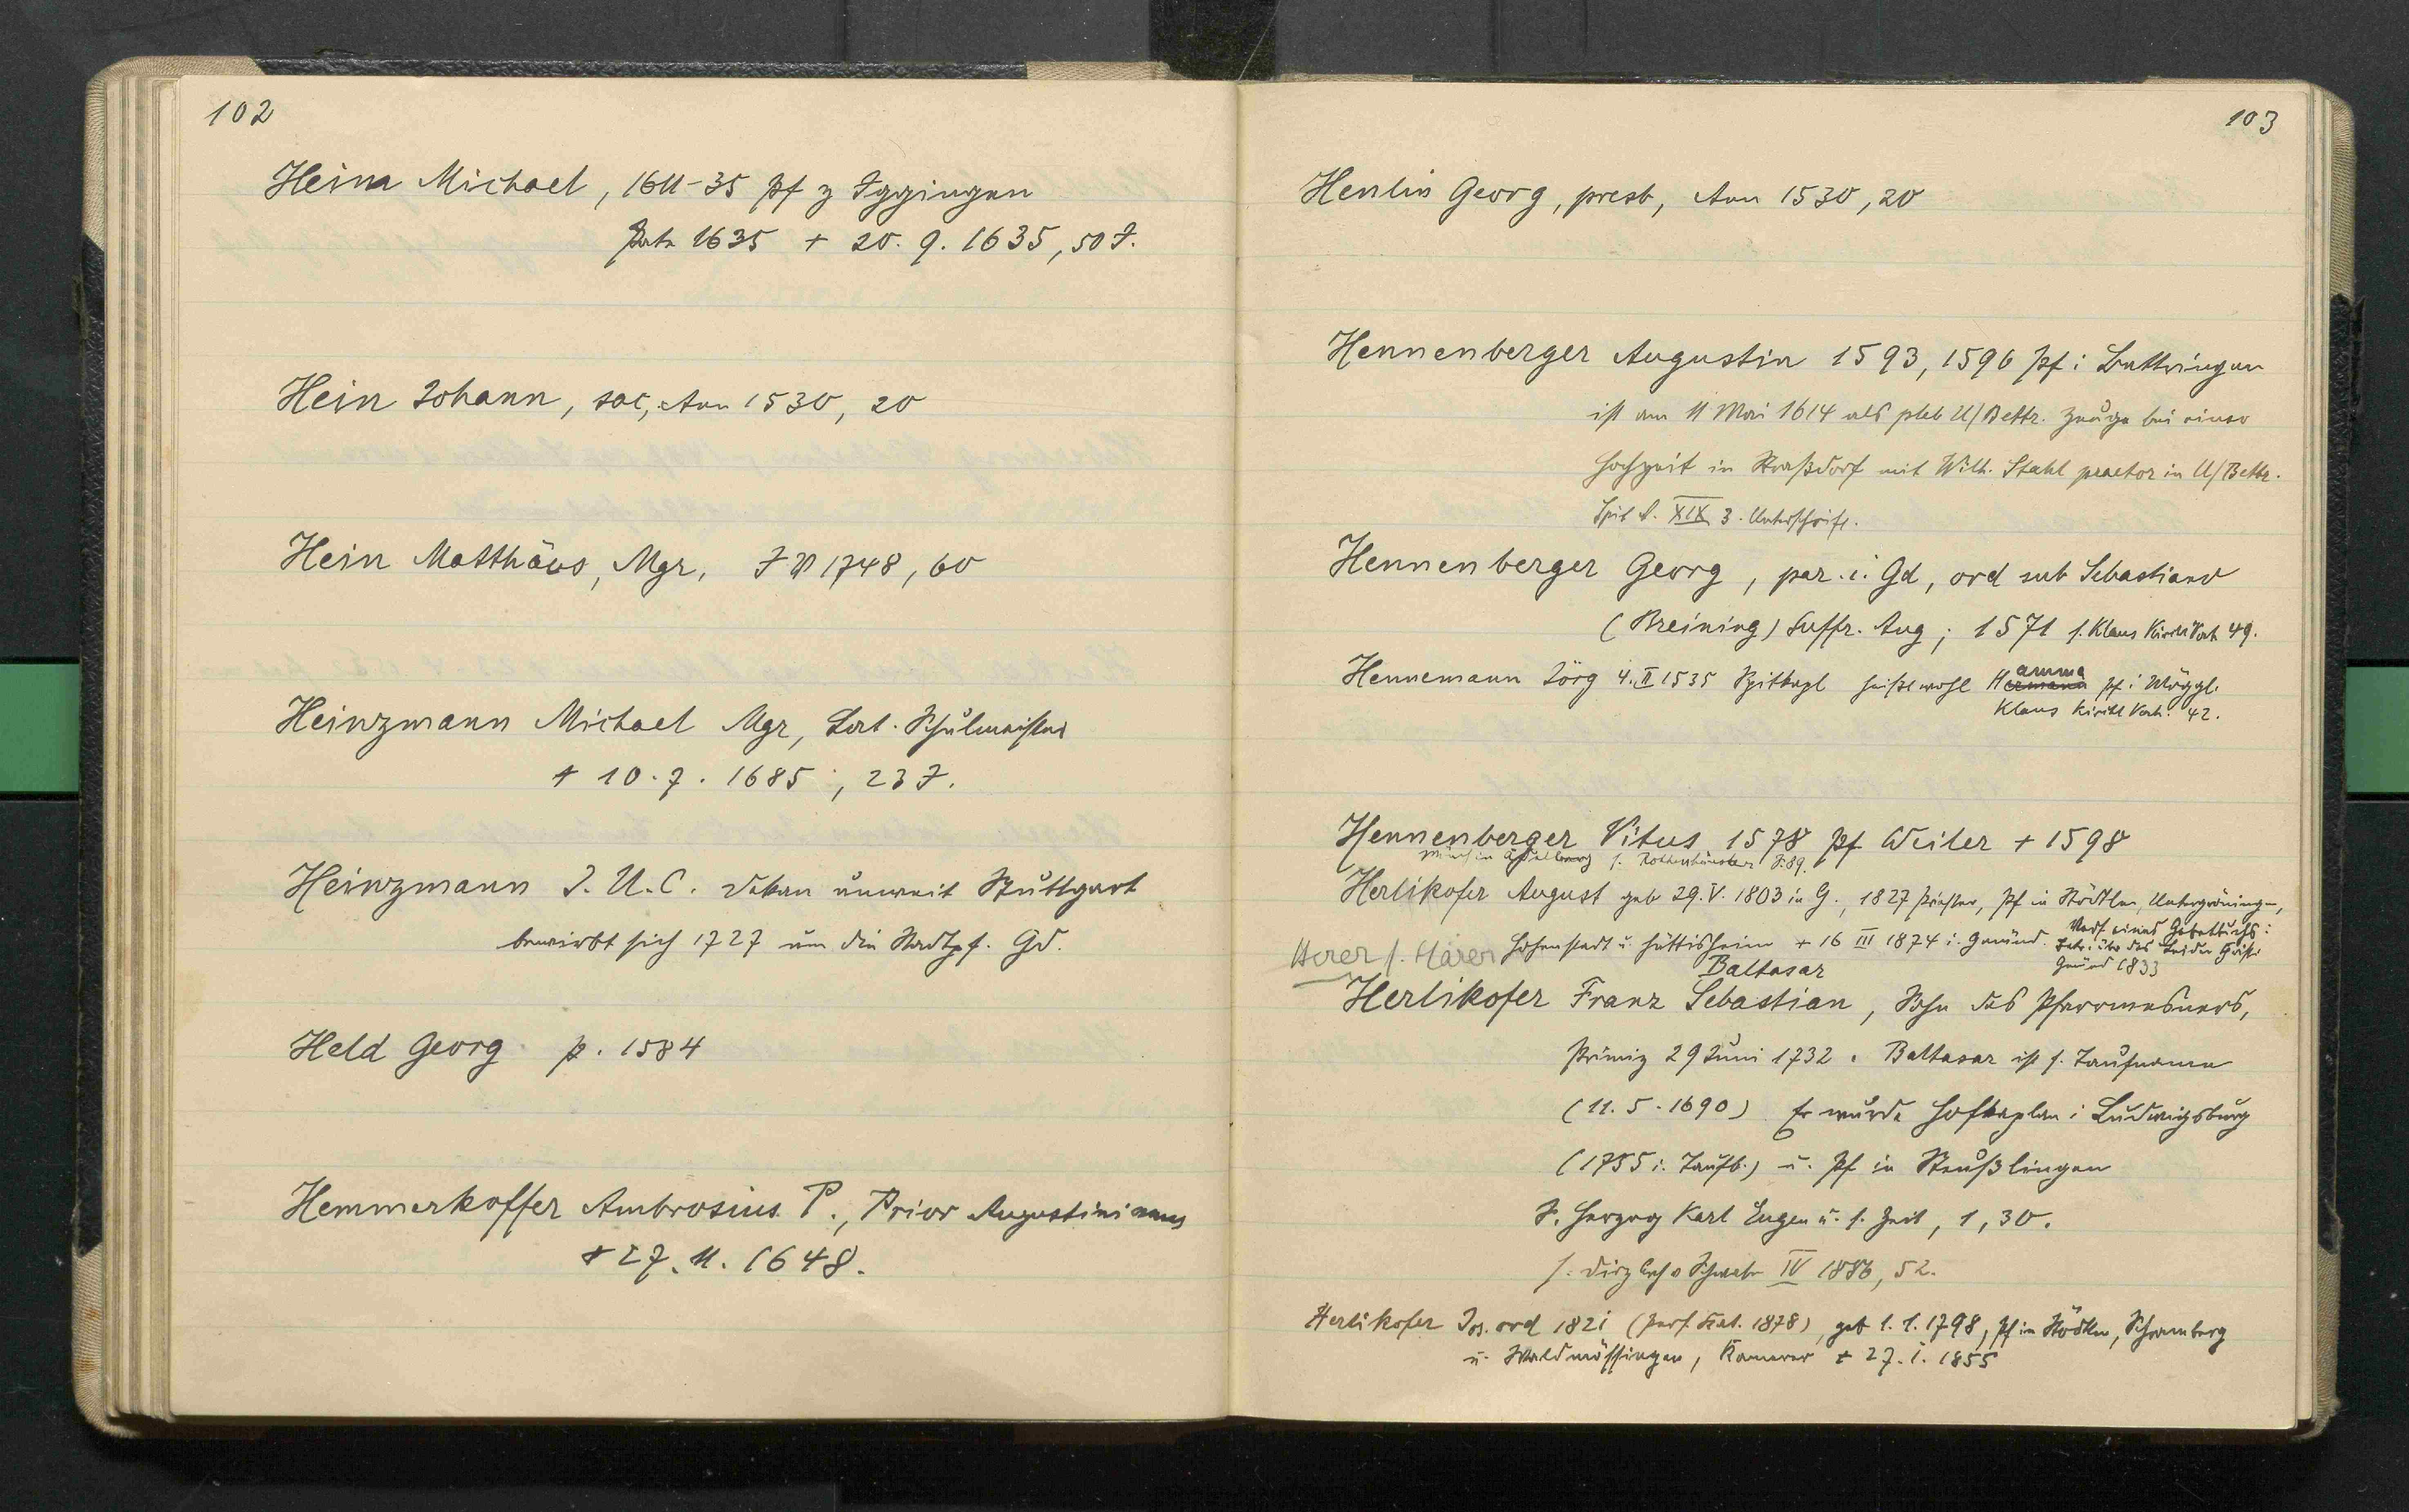 102
Heina Michael, 1611-35 Pf z Iggingen
1635 + 20. 9. 1635, 50 J.
Hein Johann, sac, Ann 1530, 20
Hein Matthäus, Mgr, 1748, 60
Heinzmann Michael Mgr, Lat. Schulmeister
+ 10. 7. 1685, 23 J.
Heinzmann J. U. C. Dekan unweit Stuttgart
bewirbt sich 1727 um die Stadtpf. Gd.
Held Georg p. 1584
Hemmerkoffer Ambrosius P., Prior Augustinianus
+ 27. 11. 1648.
103
Henlin Georg, presb, Ann 1530, 20
Hennenberger Augustin 1593, 1596 Pf i Bettringen
ist am 11 Mai 1614 als pleb U/Bettr. Zeuge bei einer
Hochzeit in Straßdorf mit Wilh. Stahl praetor in U/Bettr.
Spit A. XIX 3. Unterschrift.
Hennenberger Georg, par. i. Gd, ord sub Sebastiano
(Breining) Suffr. Aug; 1571 s. Klaus Kirchl Verh 49.
Hennemann Jörg 4. II 1535 Spitkapl heißt wohl Hermann amma Pf i Möggl.
Klaus Kirchl Verh. 42.
Hennenberger Vitus 1578 Pf Weiler + 1598
Mönch in s. S. 89.
Herlikofer August geb 29. V. 1803 in G., 1827 Priester, Pf in Stödtlen, Untergröningen,
Hohenstadt u. Hüttisheim + 16 III 1874 i. Gmünd. Verf. eines Gebetbuchs:
über das Leiden Christi
Gmünd 1833
Herer s. Härer
Baltasar
Herlikofer Franz Sebastian, Sohn des Pfarrmesners,
Primiz 29 Juni 1732. Baltasar ist s. Taufname
(11. 5. 1690) Er wurde Hofkaplan i Ludwigsburg
(1755 i. Taufb.) u. Pf in Steußlingen
S. Herzog Karl Eugen u. s. Zeit, 1, 30.
s. v Schwab IV 1886, 52.
Herlikofer Jos. ord 1821 (Pers. Kat. 1878), geb 1. 1. 1798, Pf in Stödtlen, Schramberg
u. Waldmössingen, Kamerer + 27. 1. 1855